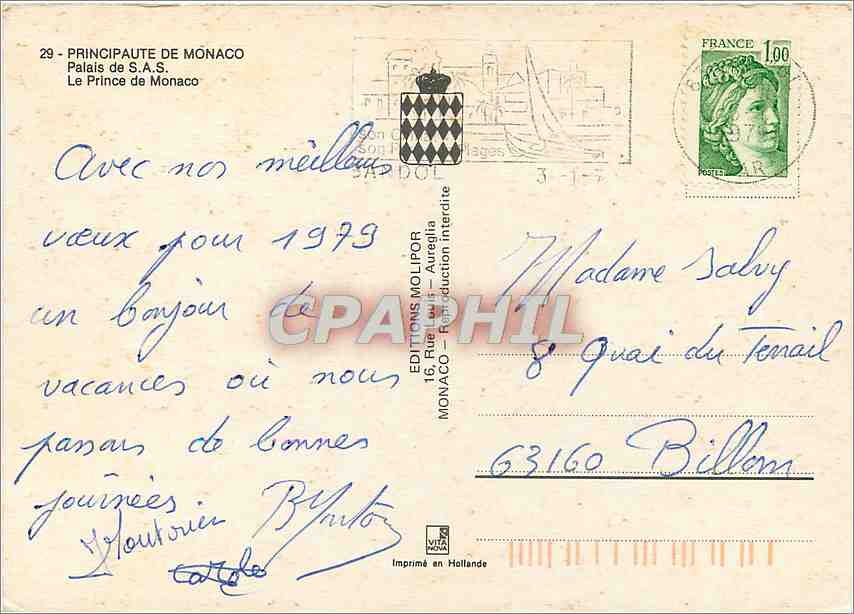 29 - PRINCIPAUTE DE MONACO
Palais de S.A.S.
Le Prince de Monaco
FRANCE 1,00
POSTES
1979
son
son Plages
BANDOL
3-1-
Avec nos meilleurs
vœux pour 1979
un bonjour de
vacances où nous
passons de bonnes
journées
Carole
EDITIONS MOLIPOR
16, Rue Louis - Aureglia
MONACO - Reproduction interdite
Madame Salvy
8 Quai du Terrail
63160 Billom
CPAPHIL
VITA NOVA
Imprimé en Hollande